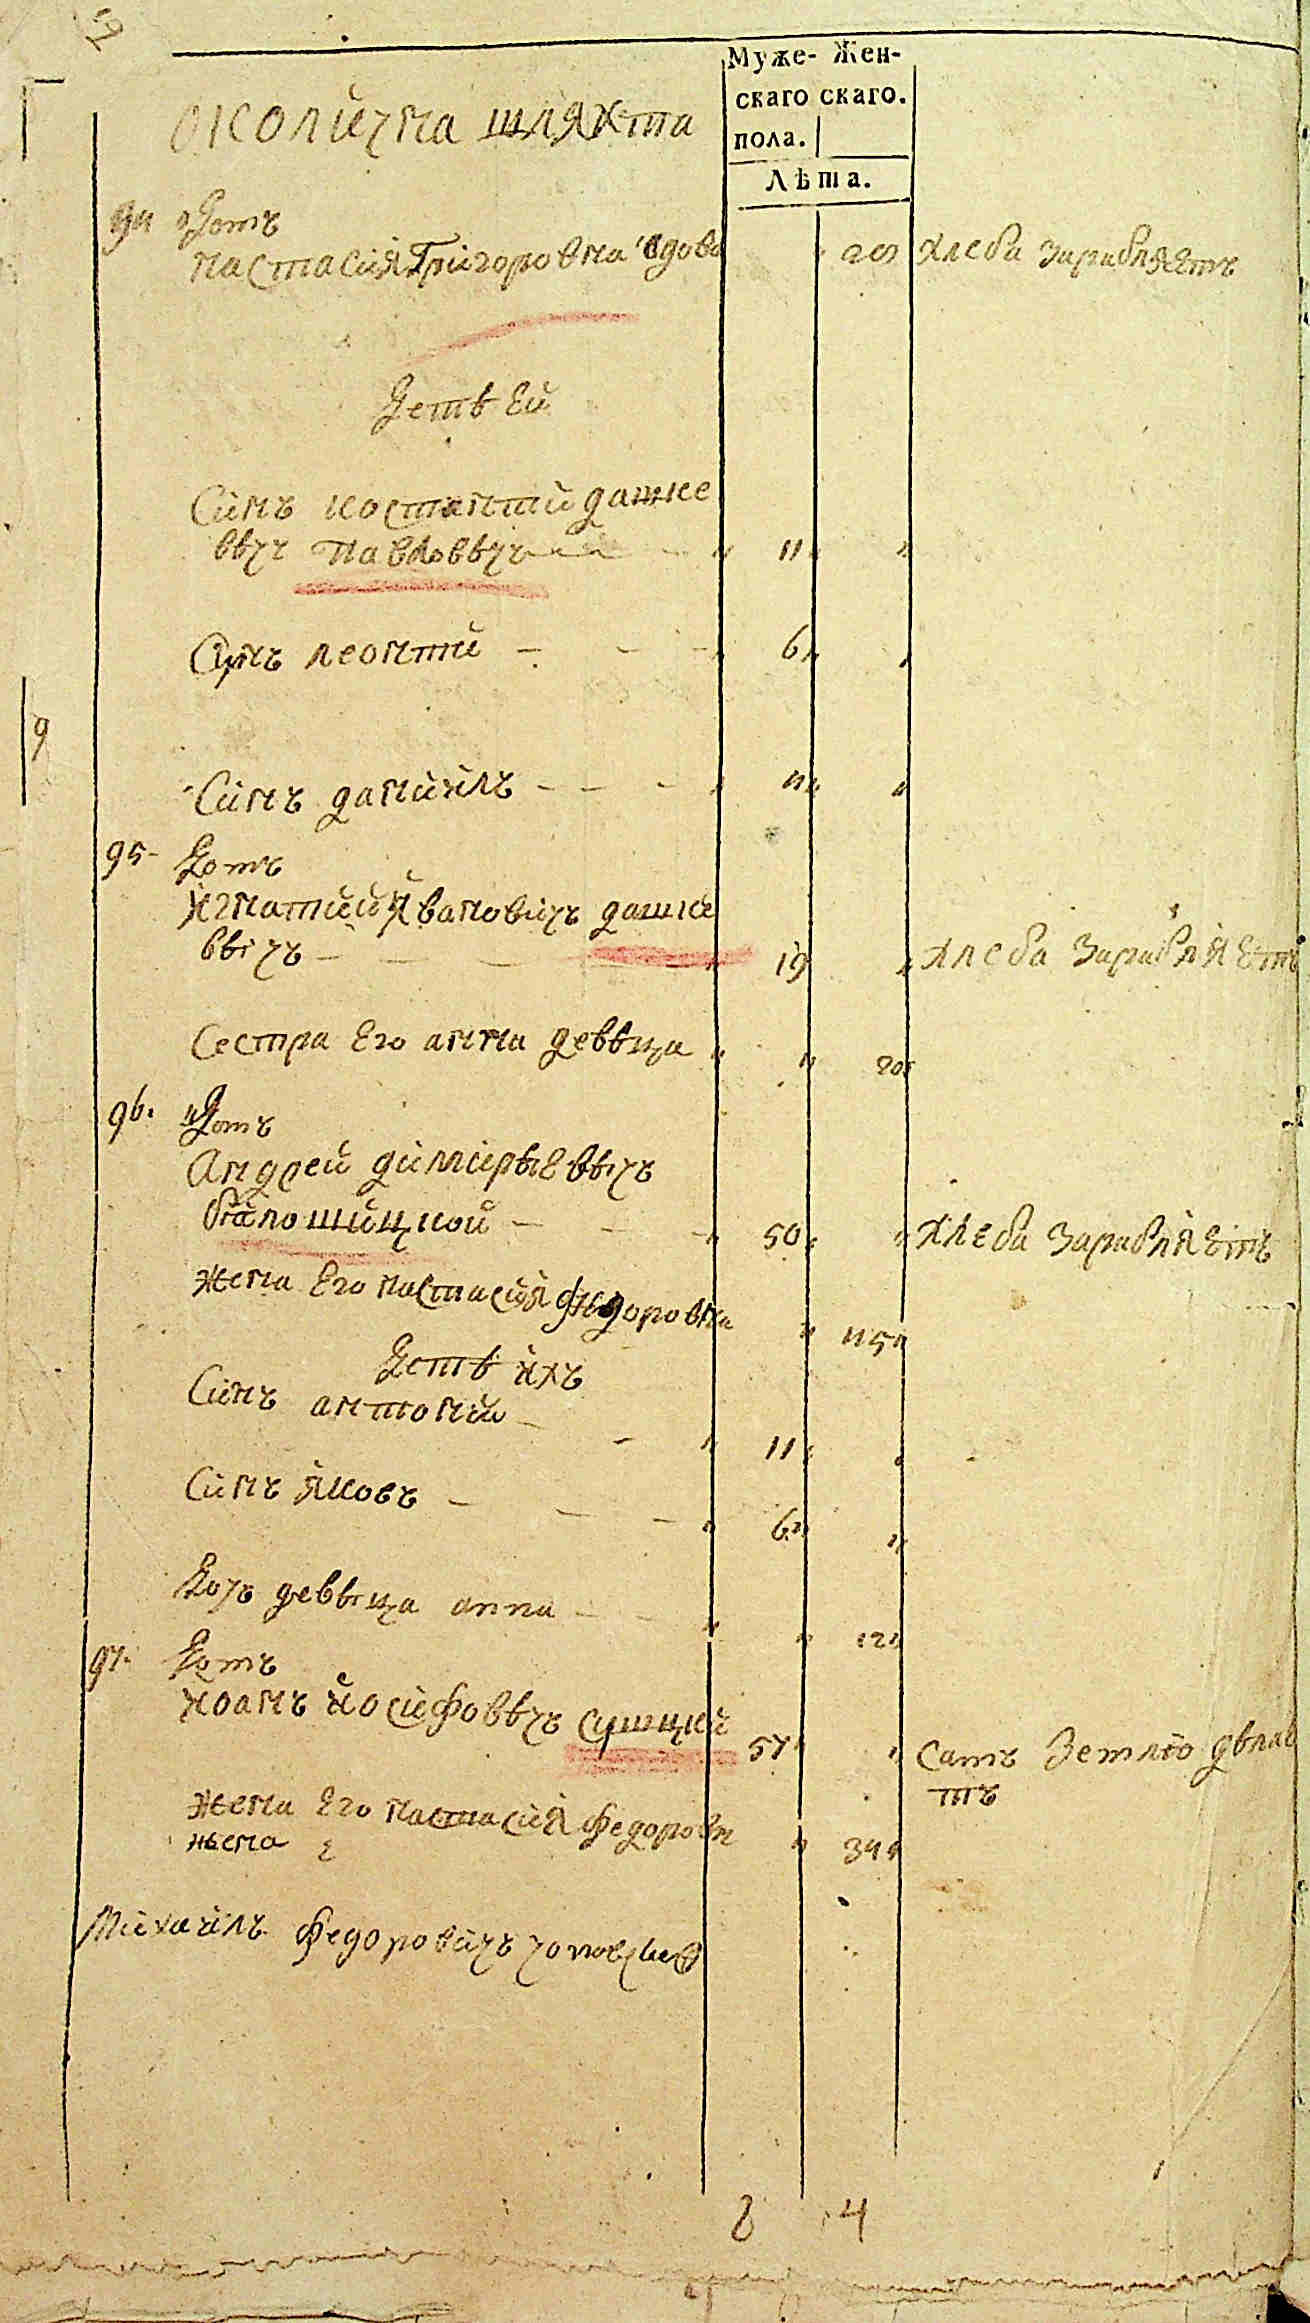 Муже- Жен-
скаго скаго.
пола.
Лѣта.
околична шляхта
94 Домъ
настасия Григоровна вдова хлеба зарабляетъ
Дети Ей
Синъ костантий дашке
вичъ Павловичъ 11
Синъ леонтий 6
Синъ даниилъ 4
9
95 Домъ
игнатий Ивановичъ дашке
вичъ 19 хлеба зарабляетъ
Сестра Его анна девица 20
96. Домъ
Андрей димитриевичъ
белошицкой 50 хлеба зарабляетъ
жена Его настасия федоровна 45
Дети ихъ
Синъ антоний 11
Синъ яковъ 6
Дочъ девица анна 12
97. Домъ
иоанъ иосифовичъ сущский 57 Самъ Землю дѣлае
тъ
жена Его настасия Федоровн 34
жена Е
Михаилъ Федоровичъ
8 4